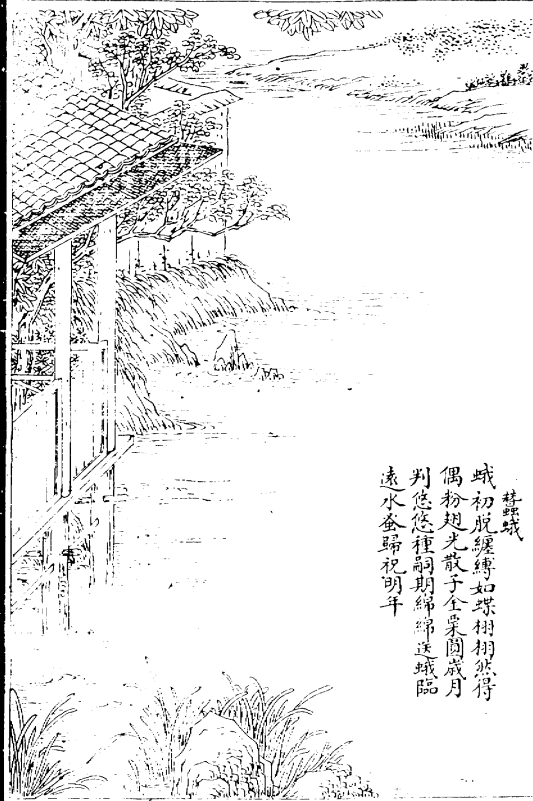 蠶蛾
蛾初脫纏縛如蝶栩栩然得
偶粉翅光散子金粟圓歲月
判悠悠種嗣期綿綿送蛾臨
遠水蚤歸祝明年